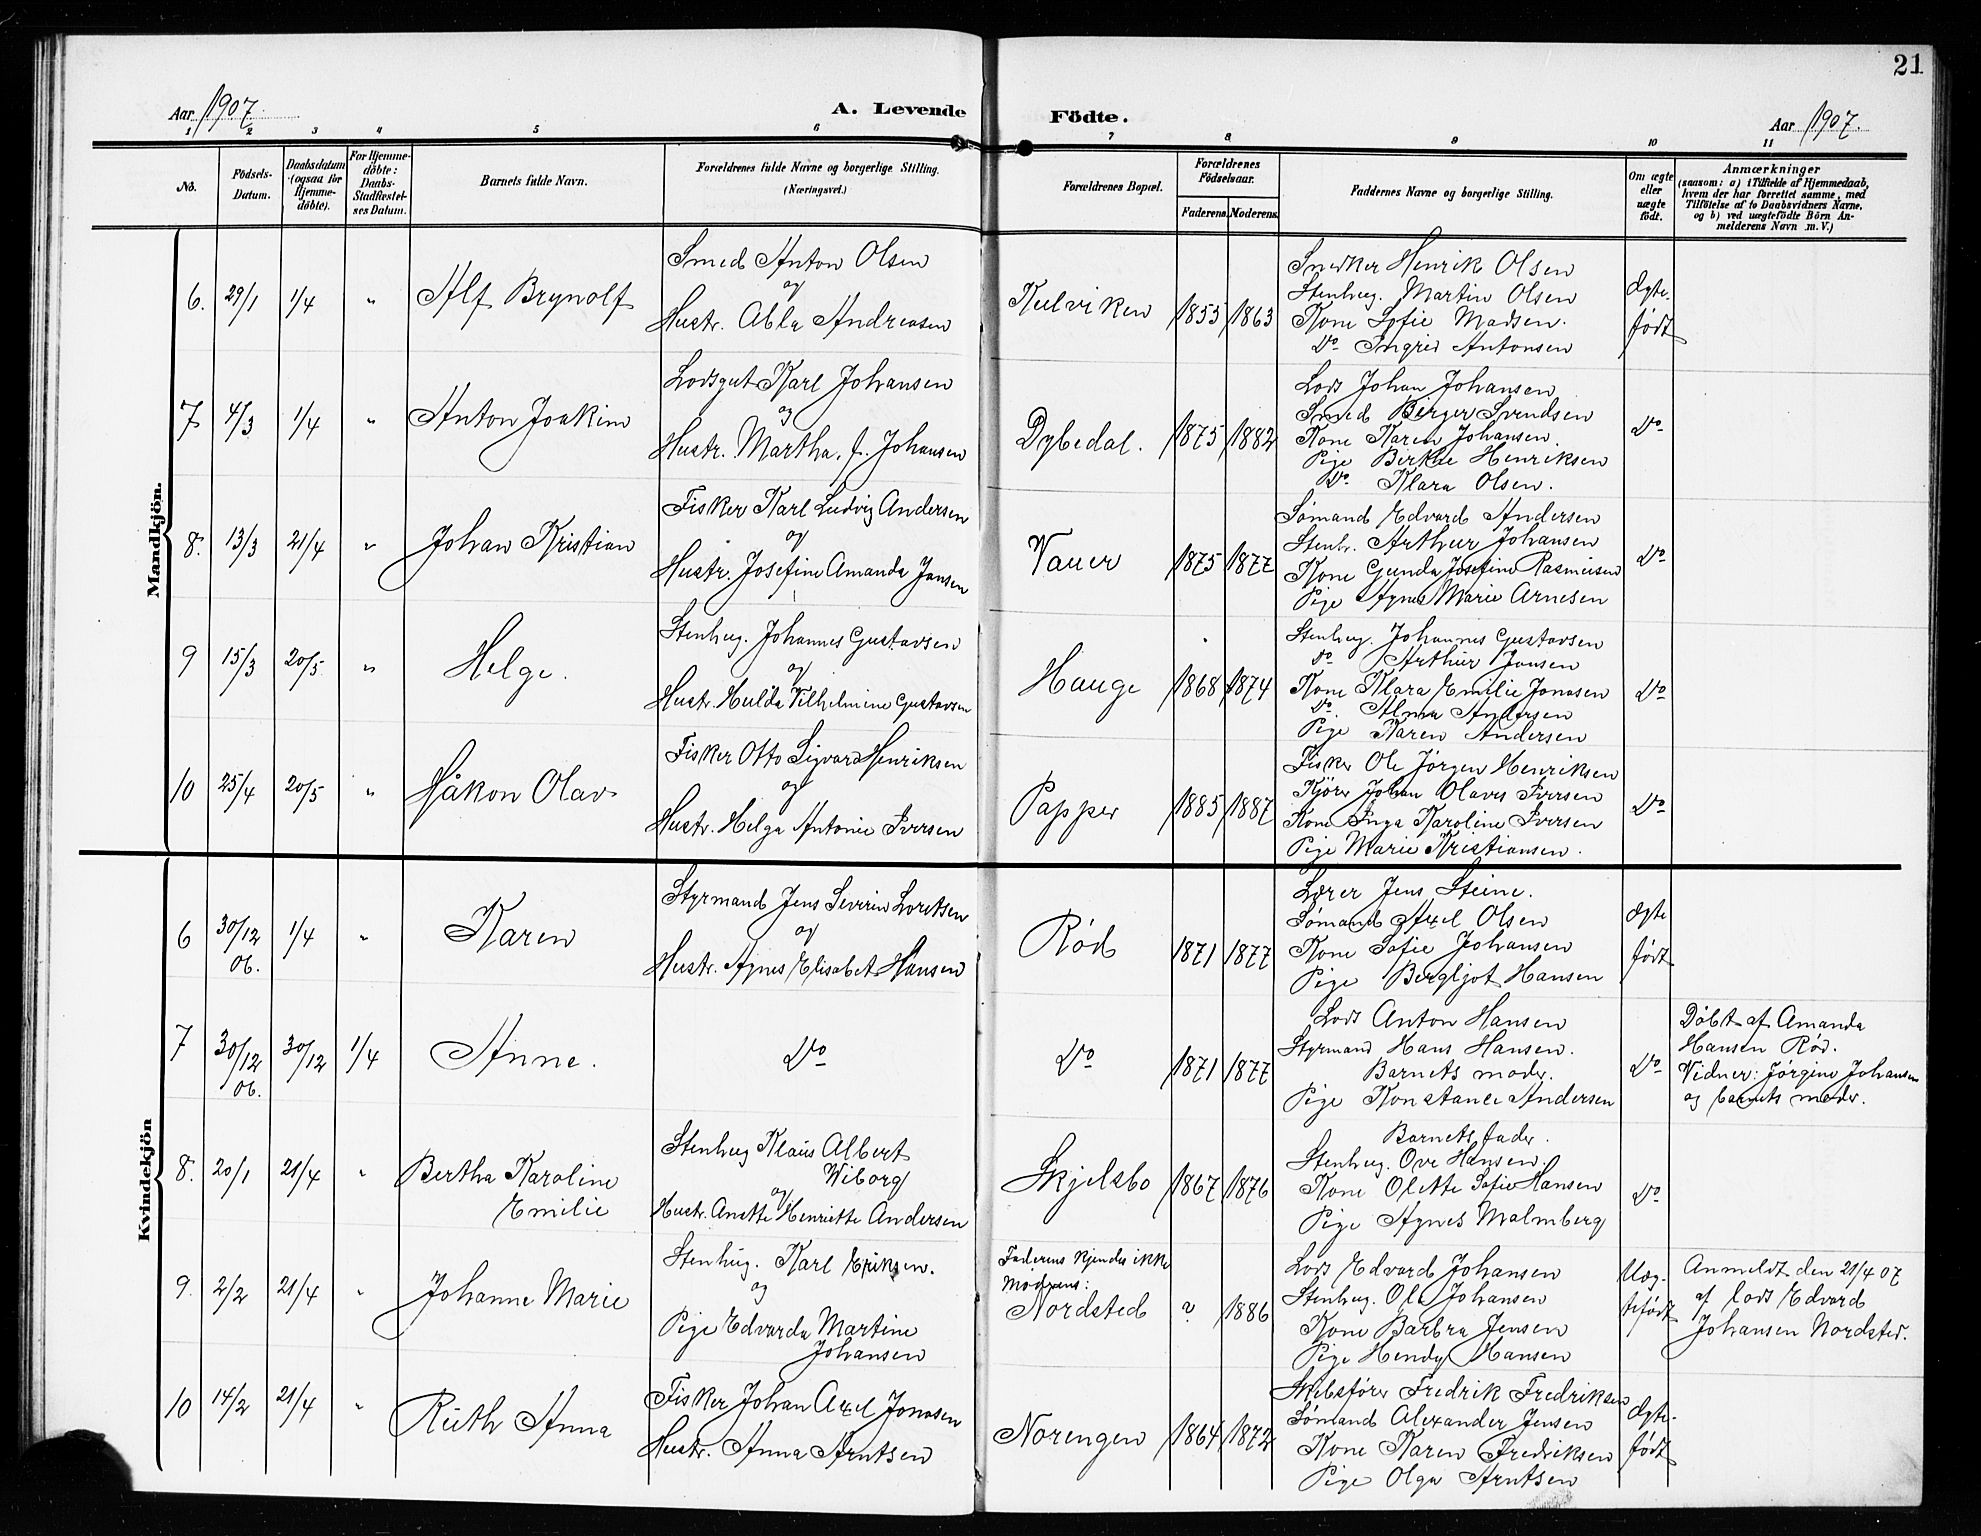 21
Aar 1907.
A. Levende Födte.
Aar 1907.
1 2 3 4 5 6 7 8 9 10 11
No.
Födsels-
Datum.
Daabsdatum
(ogsaa for
Hjemme-
döbte).
For Hjemme-
döbte:
Daabs-
Stadfæstel-
ses Datum.
Barnets fulde Navn.
Forældrenes fulde Navne og borgerlige Stilling.
(Næringsvei.)
Forældrenes Bopæl.
Forældrenes
Födselsaar.
Faderens. Moderens.
Faddernes Navne og borgerlige Stilling.
Om ægte
eller
uægte
født.
Anmærkninger
(saasom: a) i Tilfælde af Hjemmedaab,
hvem der har forrettet samme, med
Tilföielse af to Daabsvidners Navne,
og b) ved uægtefödte Börn An-
melderens Navn m. V.)
Mandkjön.
6. 29/1 1/4 " Alf Brynolf
Smed Anton Olsen
og
Hustr. Abla Andreasen
Kulviken 1855 1863
Snedker Henrik Olsen
Stenhug. Martin Olsen
Kone Sofie Madsen.
Do Ingrid Antonsen
Ægte-
født
7 4/3 1/4 " Anton Joakim
Lodsgut Karl Johansen
og
Hustr. Martha, f. Johansen
Dybedal. 1875 1882
Lods Johan Johansen
Smed Birger Svendsen
Kone Karen Johansen.
Pige Birthe Henriksen
Do. Klara Olsen.
Do
8. 13/3 21/4 " Johan Kristian
Fisker Karl Ludvig Andersen
og
Hustr. Josefine Amanda Jansen
Vauer 1875 1877
Sømand Edvard Andersen
Stenh. Arthur Johansen
Kone Gunda Josefine Rasmusen
Pige Agnes Marie Arnesen
Do
9 15/3 20/5 " Helge.
Stenhug. Johannes Gustavsen
og
Hustr. Hulda Vilhelmine Gustavsen
Hauge 1868 1874
Stenhug. Johannes Gustavsen
Do Arthur Jansen
Kone Klara Emilie Jonasen
Do. Alma Andersen
Pige Karen Andersen
Do
10 25/4 20/5 " Håkon Olav
Fisker Otto Sigvard Henriksen
og
Hustr. Helga Antonie Iversen
Papper 1885 1887
Fisker Ole Jørgen Henriksen
Kjörer Johan Olaves Iversen
Kone Inga Karoline Iversen
Pige Marie Kristiansen.
Do
Kvindekjön
6 30/12 06. 1/4 " Karen
Styrmand Jens Severin Loretsen
og
Hustr. Agnes Elisabet Hansen
Rød 1871 1877
Lærer Jens Steine.
Sømand Axel Olsen
Kone Sofie Johansen
Pige Bergljot Hansen
Ægte
født
7 30/12 06. 30/12 1/4 Anne.
Do
Do 1871 1877
Lods Anton Hansen
Styrmand Hans Hansen.
Barnets moder.
Pige Konstance Andersen
Do
Døbt af Amanda
Hansen Rød.
Vidner: Jørgine Johansen
og barnets moder.
8. 20/1 21/4 " Bertha Karoline
Emilie
Stenhug Klaus Albert
Wiborg
og
Hustr. Anette Henriette Andersen
Skjelsbo 1867 1876
Barnets fader.
Stenhug. Ove Hansen.
Kone Olette Sofie Hansen
Pige Agnes Malmberg
Do
9. 2/2 21/4 " Johanne Marie
Stenhug. Karl Eriksen.
og
Pige Edvarda Martine
Johansen
Faderens kjendes ikke
Moderens:
Nordsted ? 1886
Lods Edvard Johansen
Stenhug. Ole Johansen
Kone Barbra Jensen
Pige Hendy Hansen
Uæg-
tefødt
Anmeldt den 21/4 07
af lods Edvard
Johansen Nordsted.
10 14/2 21/4 " Ruth Anna
Fisker Johan Axel Jonasen
Hustr. Anna Arntsen
Norengen 1864 1872
Skibsfører Fredrik Fredriksen
Sømand Alexander Jensen
Kone Karen Fredriksen
Pige Olga Arntsen
Ægte-
født